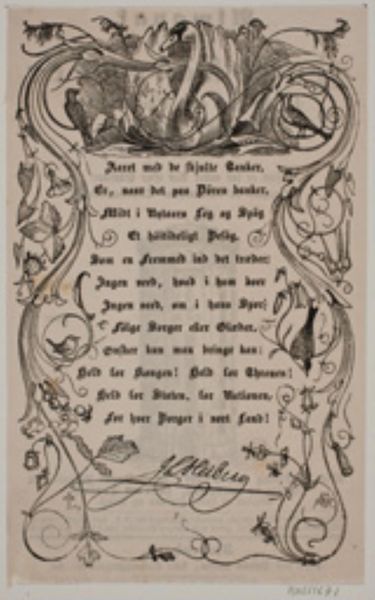 Aaret med de skjulte Tanker,
Er, naar det paa Dören banker,
Midt i Nytaars Leg og Spög
Et höitideligt Besög.
Som en Fremmed ind det træder;
Ingen veed, hvad i ham boer
Ingen veed, om i hans Spor
Fölge Sorger eller Glæder.
Önsker kun man bringe kan:
Held for Kongen! Held for Thronen!
Held for Staten, for Nationen,
For hver Borger i vort Land!